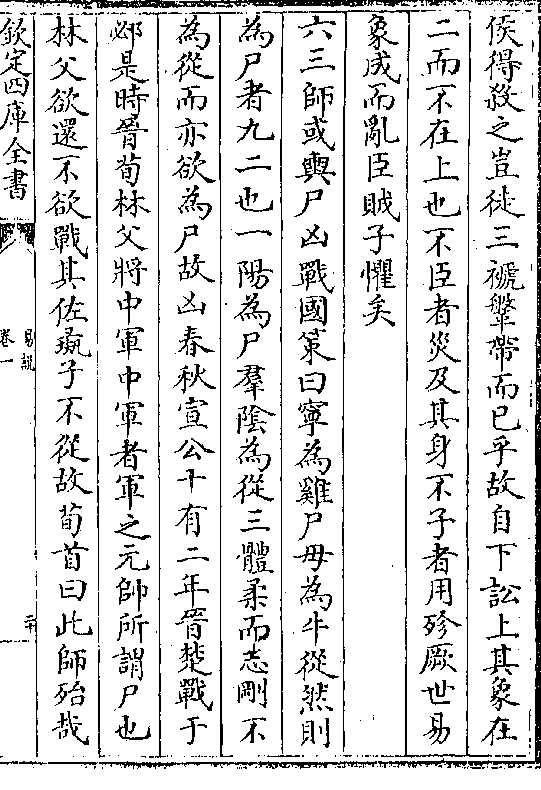 侯得殺之豈徒三褫鞶帶而已乎故自下訟上其象在
二而不在上也不臣者災及其身不子者用殄厥世易
象成而亂臣賊子懼矣
六三師或輿尸凶戰國策曰寧為雞尸毋為牛從然則
為尸者九二也一陽為尸羣陰為從三體柔而志剛不
為從而亦欲為尸故凶春秋宣公十有二年晉楚戰于
邲是時晉荀林父將中軍中軍者軍之元帥所謂尸也
林父欲還不欲戰其佐彘子不從故荀首曰此師殆哉
欽定四庫全書
易說
卷一